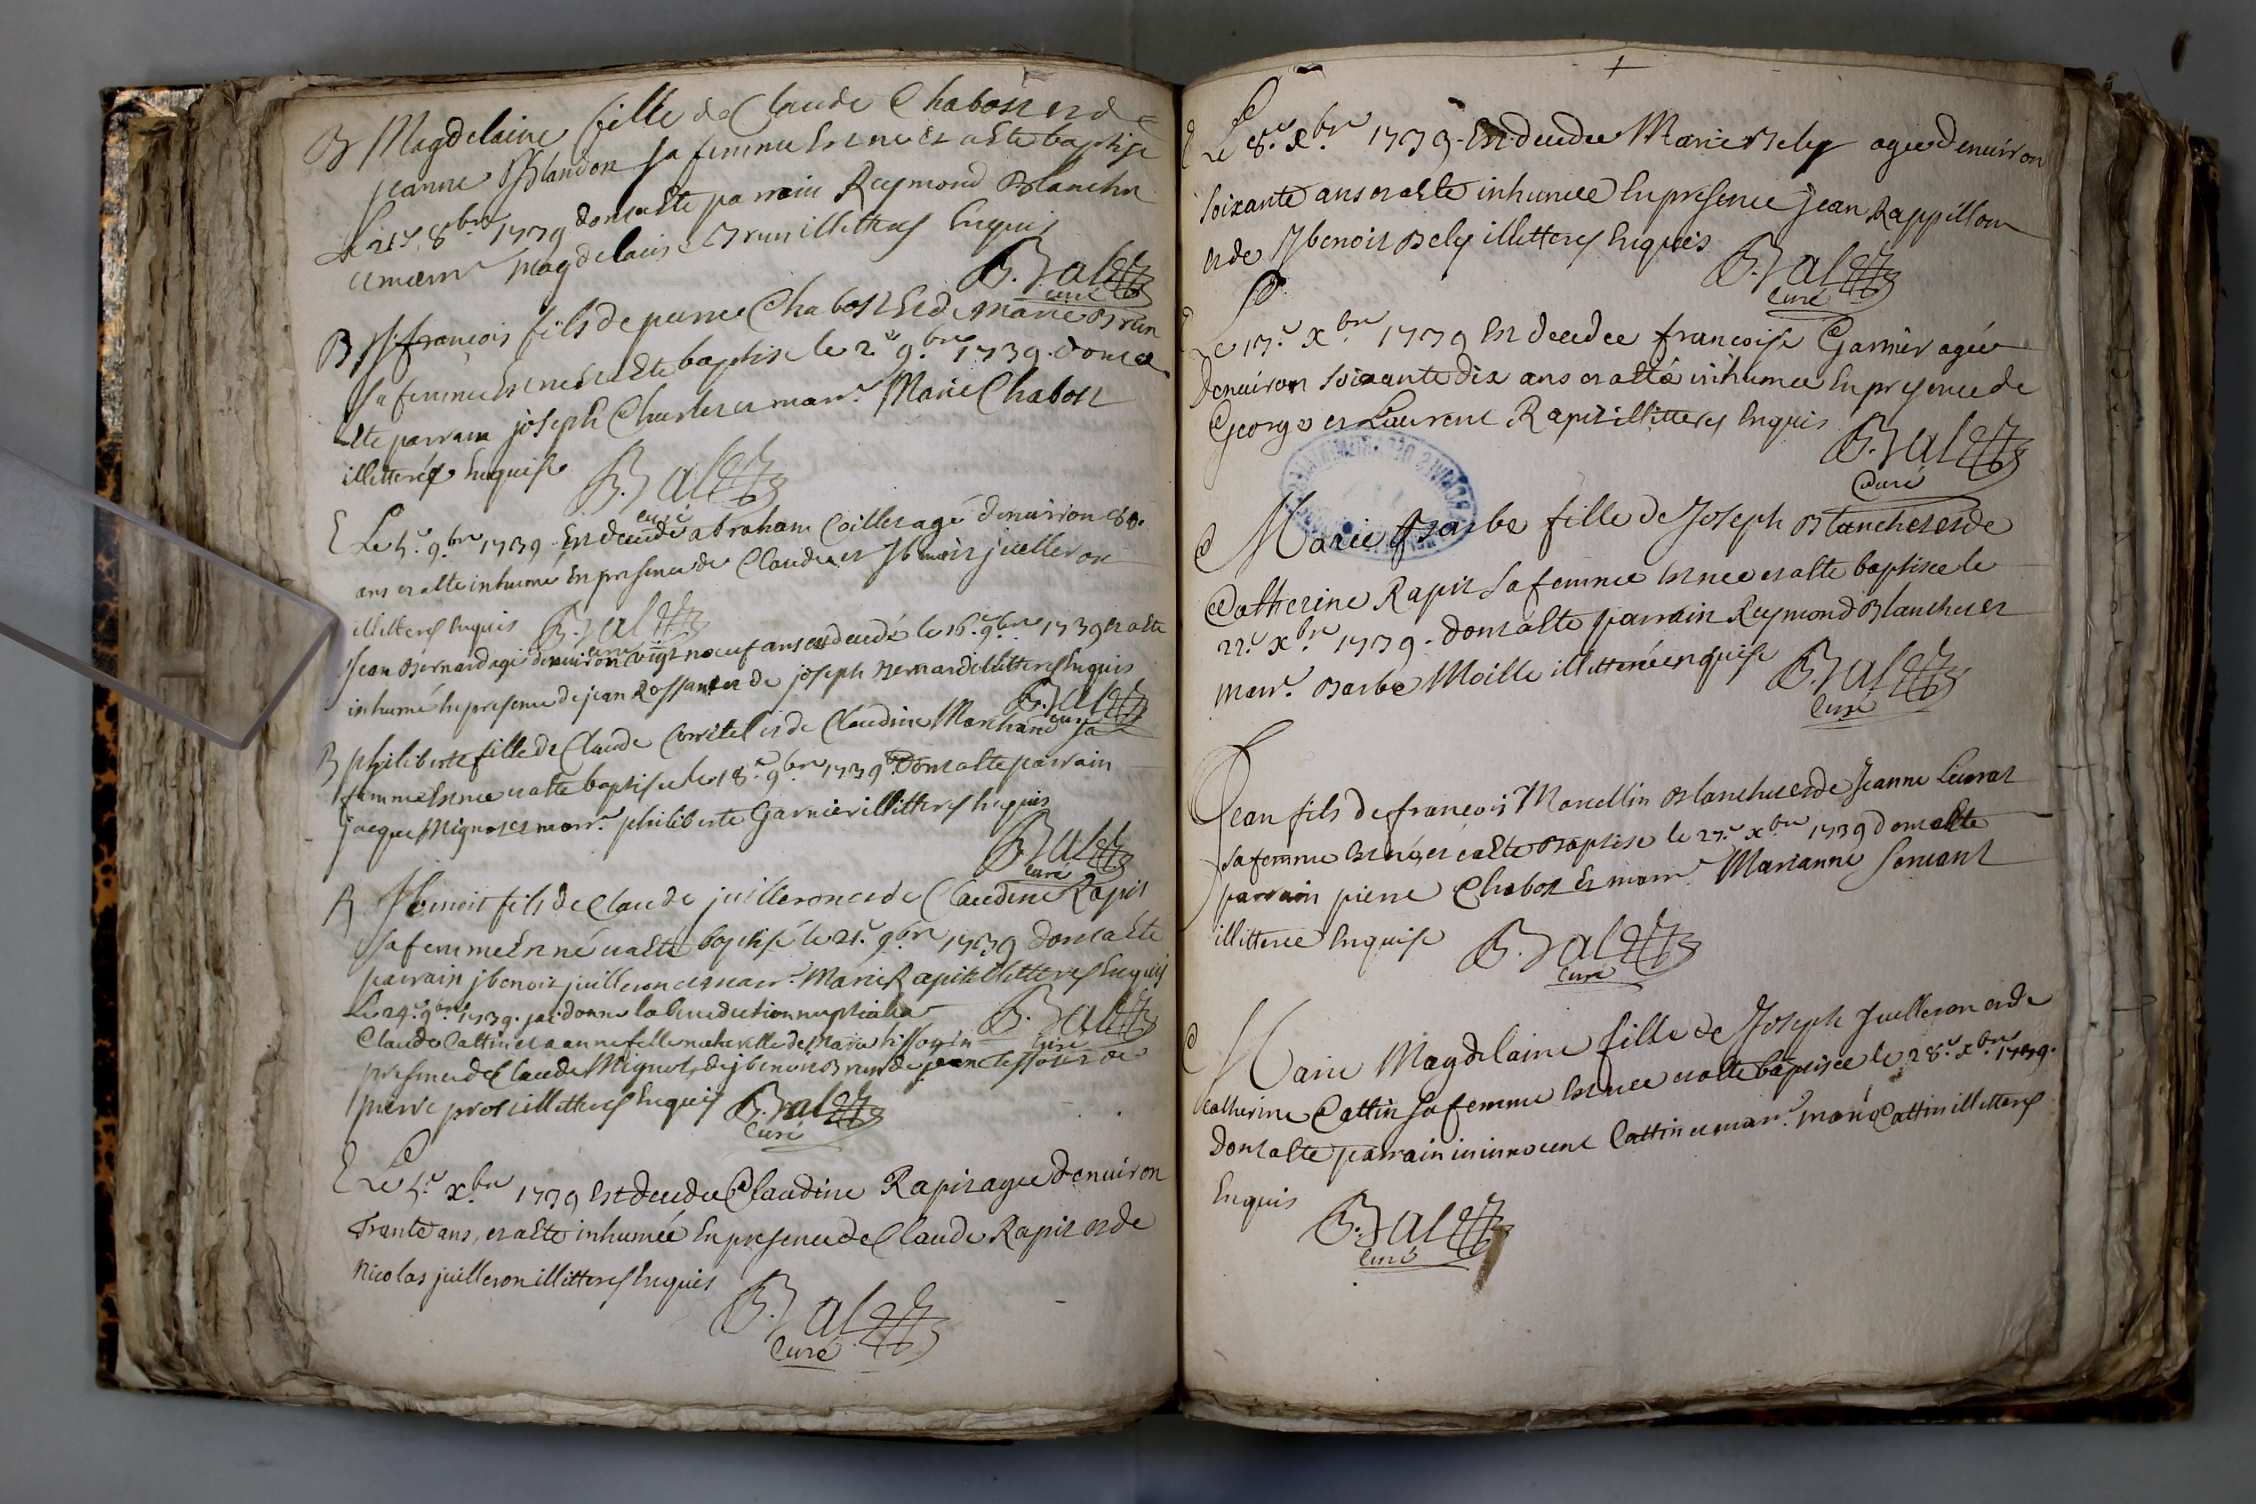 B Magdelaine fille de Claude Chabost et de
jeanne Blandon sa femme Est née Et a Eté baptisé
Le 21e 8bre 1739 dont a Eté parrain Reymond Blanchet
et marr.e Magdelaine Brun illitterés Enquis
B. Balet
curé
B françois fils de pierre Chabost Et de Marie Brun
sa femme Est né Et a Eté baptisé le 2.e 9.bre 1739. dont a
Eté parrain joseph Charles et marr.e Marie Chabost
illitterés Enquise
B. Balet
curé
E Le 5.e 9.bre 1739. Est decedé abraham Coillet agé denuiron 80.
ans et a Eté inhumé En presence de Claude et jbenoit juilleron
illitterés Enquis B. Balet
curé
Jean Bernard agé denuiron vigt noeuf ans est decedé le 16.e 9.bre 1739 Et a Eté
inhumé En presence de jean Rossant et de joseph Bernard illitterés Enquis
B. Balet
curé
B philiberte fille de Claude Comtet et de Claudine Marchand sa
femme Est née et a Eté baptisée le 18.e 9.bre 1739. Dont a Eté parrain
jacque Mignot et marr.e philiberte Garnier illitterés Enquis
B. Balet
curé
B jbenoit fils de Claude juilleron et de Claudine Rapit
sa femme Est né et a Eté baptisé le 21.e 9.bre 1739 dont a Eté
parrain jbenoit juilleron et marr.e Marie Rapit illitterés Enquis
Le 24.e 9.bre 1739. jai donné la benediction nuptiale a
B. Balet
curé
Claude Cattin et a anne fille de Marie
presence de Claude Mignot, de jbenoit Brun de jean et de
pierre prost illitterés Enquis B. Balet
curé
E Le 5.e x.bre 1739 Est decedee Claudine Rapit agee denuiron
Trante ans, et a Eté inhumée En presence de Claude Rapit et de
Nicolas juilleron illitterés Enquis
B. Balet
curé
Le 8.e x.bre 1739. Est decedee Marie Bely agee denuiron
soixante ans et a Eté inhumee En presence jean Rappillon
et de jbenoit Bely illitterés Enquis
B. Balet
curé
Le 17.e x.bre 1739 Est decedee françoise Garnier agée
denuiron soixante dix ans et a Eté inhumee En presence de
George et Laurent Rapit illitterés Enquis
B. Balet
curé
Marie Barbe fille de Joseph Blanchet et de
Catherine Rapit sa femme Est nee et a Eté baptisee le
22.e x.bre 1739. dont a Eté parrain Reymond Blanchet et
marr.e Barbe Moille illitterée enquise
B. Balet
curé
Jean fils de françois Marcellin Blanchet et de Jeanne Leurat
sa femme Est né et a Eté Baptisé le 27.e x.bre 1739 dont a Eté
parrain pierre Chabost Et marr.e Marianne
illitterée Enquise B. Balet
curé
Marie Magdelaine fille de Joseph Juilleron et de
catherine Cattin sa femme Est nee et a Eté baptisée le 28.e x.bre 1739.
dont a Eté parrain innocent Cattin et marr.e marie Cattin illitterés
Enquis
B. Balet
curé